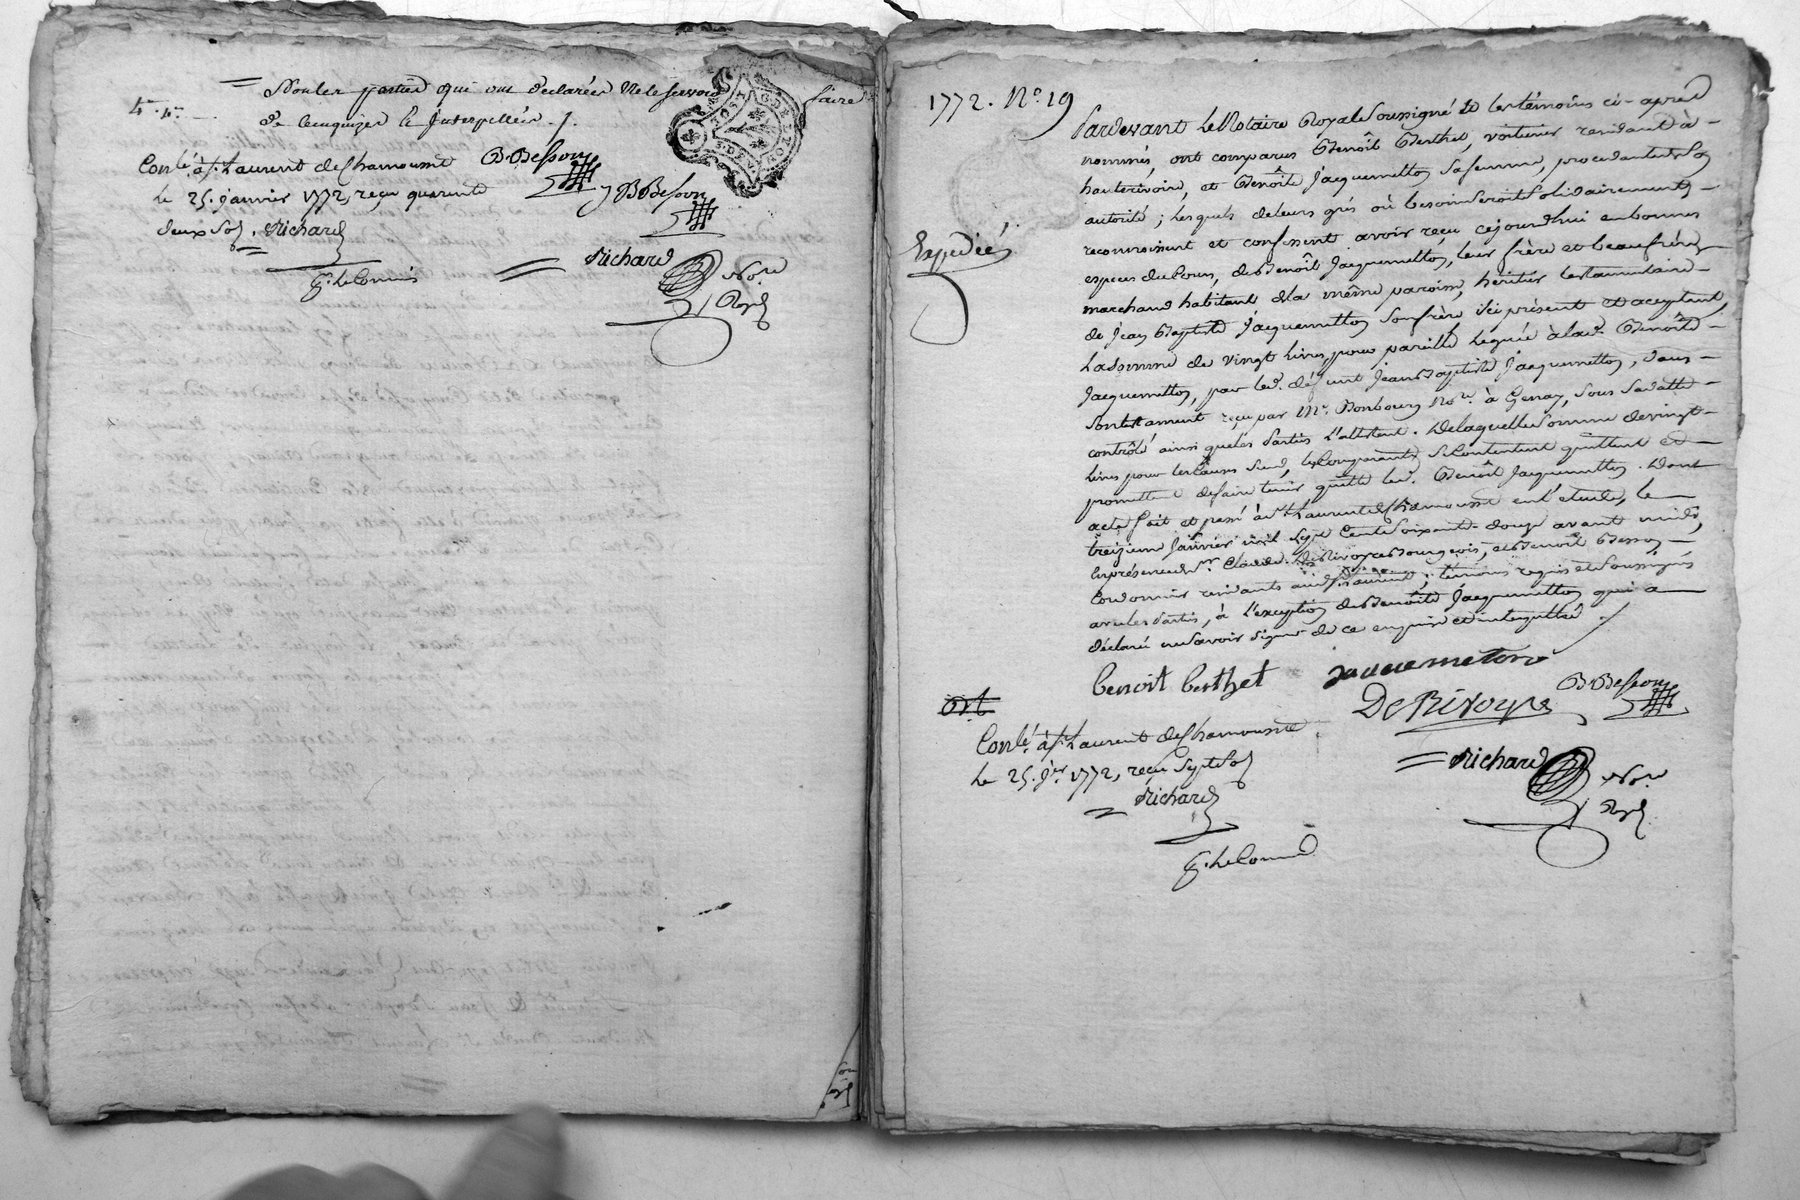 4e. 4e.
= Non les parties qui ont déclarées ne le scavoir faire
de ce enquizes & Interpellées ./.
B. Besson
Conlé. à St. Laurent de Chamousset
J B Besson
le 25. janvier 1772, reçu quarante
deux sols. Richard
= Richard Nore. Royal
p. le Commis
1772. No. 19
Expedié
Pardevant le Notaire Royal Soussigné & les témoins ci-après
nommés, ont comparus Benoît Berthet, voiturier residant à
hauterivoire, et Benôite Jacquemetton sa femme, procedante de son
autorité ; lesquels de leurs grés où besoin seroit solidairement
reconnoissent et confessent avoir reçu cejourd'hui en bonnes
especes du cours, de Benoît Jacquemetton, leur frère et beaufrère,
marchand habitant de la même paroisse, héritier testamentaire
de Jean Baptiste Jacquemetton son frère ici présent et acceptant,
La somme de vingt livres, pour pareille leguée à lad. Benôite
Jacquemetton, par led. défunt Jean Baptiste Jacquemetton, dans
son testament reçu par Me. Bonbourg Nore. à Genay, sous sa datte
contrôlé ainsi que les Parties l'attestent. De laquelle somme de vingt
livres pour les causes susd, les Comparants se contentent quittent et
promettent de faire tenir quitte led. Benoît Jacquemetton. Dont
acte fait et passé à St. Laurent de Chamousset en l'étude, le
treizieme Janvier mil sept Cents soixante-douze avant midi,
En présence de Sr. Claude De Rivoyre Bourgeois, et Benoît Besson
Cordonnier residants aud. St. Laurent ; témoins requis et soussignés
avec les Parties, à l'exception de Benôite Jacquemetton qui a
déclaré ne savoir signer de ce enquise et interpellée ./.
benoit berthet Jacquemeton
De Rivoyre B. Besson
Conlé. à St. Laurent de Chamousset
le 25. jer. 1772, reçu sept sols
= Richard Nore. Royal
= Richard
p. le Commis